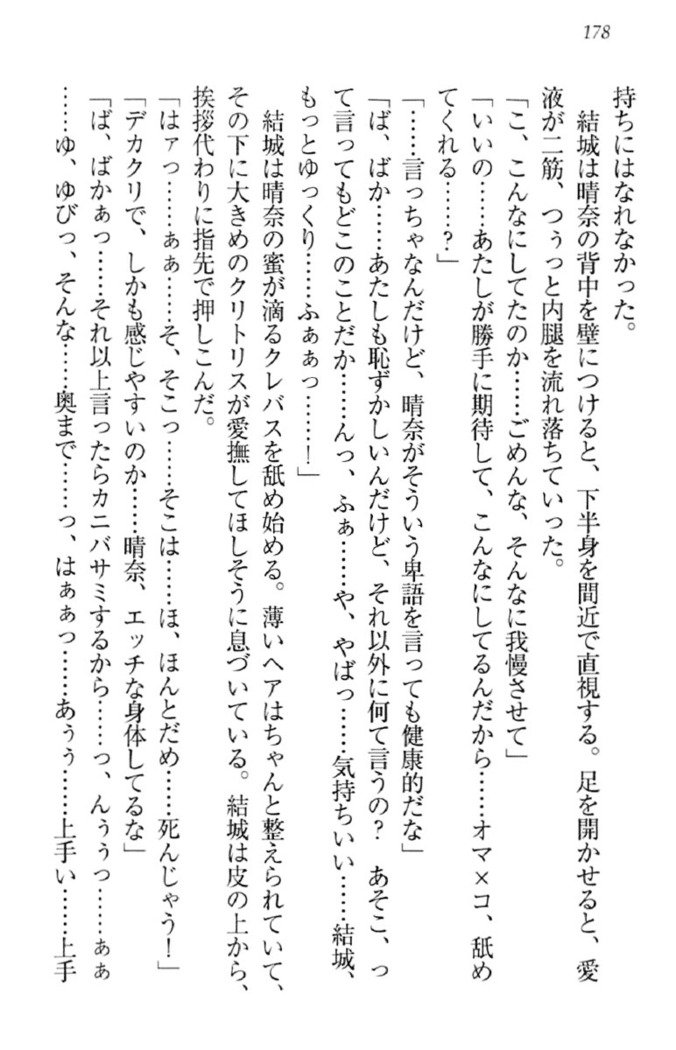 178
持ちにはなれなかった。
　結城は晴奈の背中を壁につけると、下半身を間近で直視する。足を開かせると、愛
液が二筋、つぅっと内腿を流れ落ちていった。
「こ、こんなにしてたのか……ごめんな、そんなに我慢させて」
「いいの……あたしが勝手に期待して、こんなにしてるんだから……オマ×コ、舐め
てくれる……？」
「……言っちゃなんだけど、晴奈がそういう卑語を言っても健康的だな」
「ば、ばか……あたしも恥ずかしいんだけど、それ以外に何て言うの？　あそこ、っ
て言ってもどこのことだか……んっ、ふぁ……や、やばっ……気持ちいい……結城、
もっとゆっくり……ふぁぁっ……！」
　結城は晴奈の蜜が滴るクレバスを舐め始める。薄いヘアはちゃんと整えられていて、
その下に大きめのクリトリスが愛撫してほしそうに息づいている。結城は皮の上から、
挨拶代わりに指先で押しこんだ。
「はァっ……ぁぁ……そ、そこっ……そこは……ほ、ほんとだめ……死んじゃう！」
「デカクリで、しかも感じやすいのか……晴奈、エッチな身体してるな」
「ば、ばかぁっ……それ以上言ったらカニバサミするから……っ、んぅぅっ……ぁぁ
……ゆ、ゆびっ、そんな……奥まで……っ、はぁぁっ……あぅぅ……上手い……上手